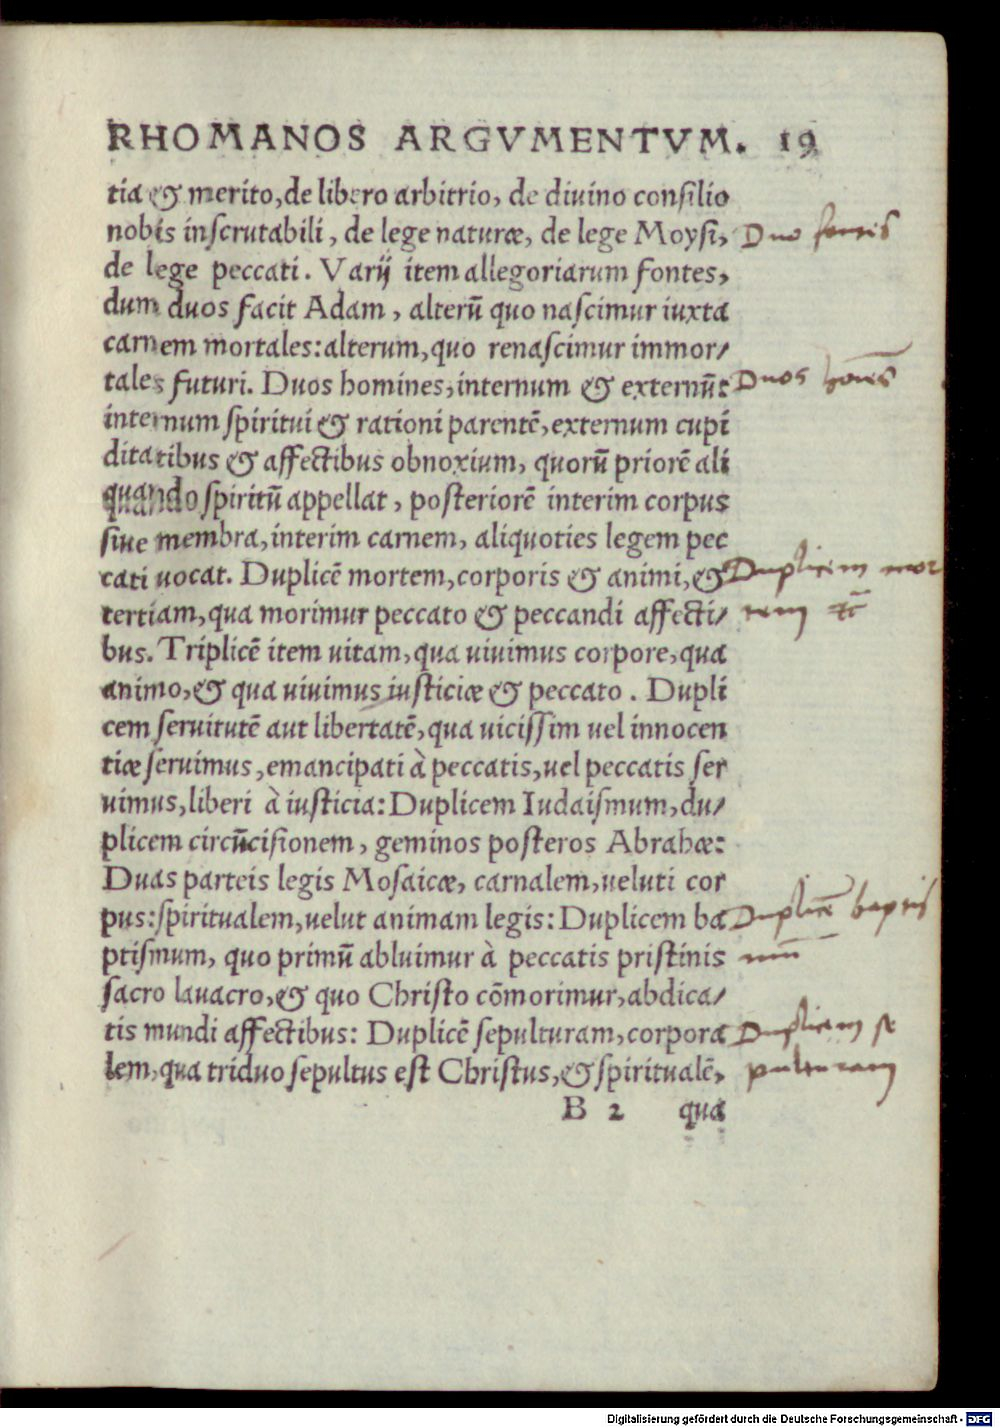 RHOMANOS ARGVMENTVM. 19
tia & merito, de libero arbitrio, de diuino consilio
nobis inscrutabili, de lege naturæ, de lege Moysi,
Duo fontes
de lege peccati. Varij item allegoriarum fontes,
dum duos facit Adam, alterū quo nascimur iuxta
carnem mortales: alterum, quo renascimur immor/
tales futuri. Duos homines, internum & externū:
Duos hoīes
internum spiritui & rationi parentē, externum cupi
ditatibus & affectibus obnoxium, quorū priorē ali
quando spiritū appellat, posteriorē interim corpus
siue membra, interim carnem, aliquoties legem pec
cati uocat. Duplicē mortem, corporis & animi, &
Duplicem mor
tertiam, qua morimur peccato & peccandi affecti/
tem
bus. Triplicē item uitam, qua uiuimus corpore, qua
animo, & qua uiuimus iusticiæ & peccato. Dupli
cem seruitutē aut libertatē, qua uicissim uel innocen
tiæ seruimus, emancipati à peccatis, uel peccatis ser
uimus, liberi à iusticia: Duplicem Iudaismum, du/
plicem circūcisionem, geminos posteros Abrahæ:
Duas parteis legis Mosaicæ, carnalem, ueluti cor
pus: spiritualem, uelut animam legis: Duplicem ba
Duplicē baptis
ptismum, quo primū abluimur à peccatis pristinis
mū
sacro lauacro, & quo Christo cōmorimur, abdica/
tis mundi affectibus: Duplicē sepulturam, corpora
Duplicem se
lem, qua triduo sepultus est Christus, & spiritualē,
pulturam
B 2 qua
Digitalisierung gefördert durch die Deutsche Forschungsgemeinschaft - DFG